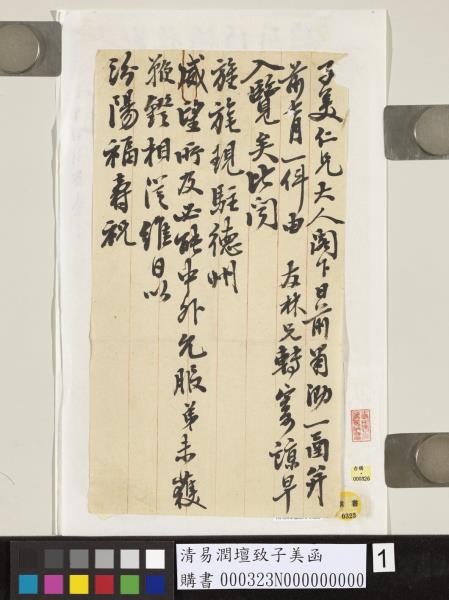 子美仁兄大人閣下日前肅泐一函并
前七月一件由 友林兄轉寄諒早
入覽矣比閱
旌旄現駐德州
威望所及必能中外允服弟未獲
鞭鐙相從維日以
汾陽福壽祝
購書
0323
000326
清易潤壇致子美函
購書 000323N000000000
1